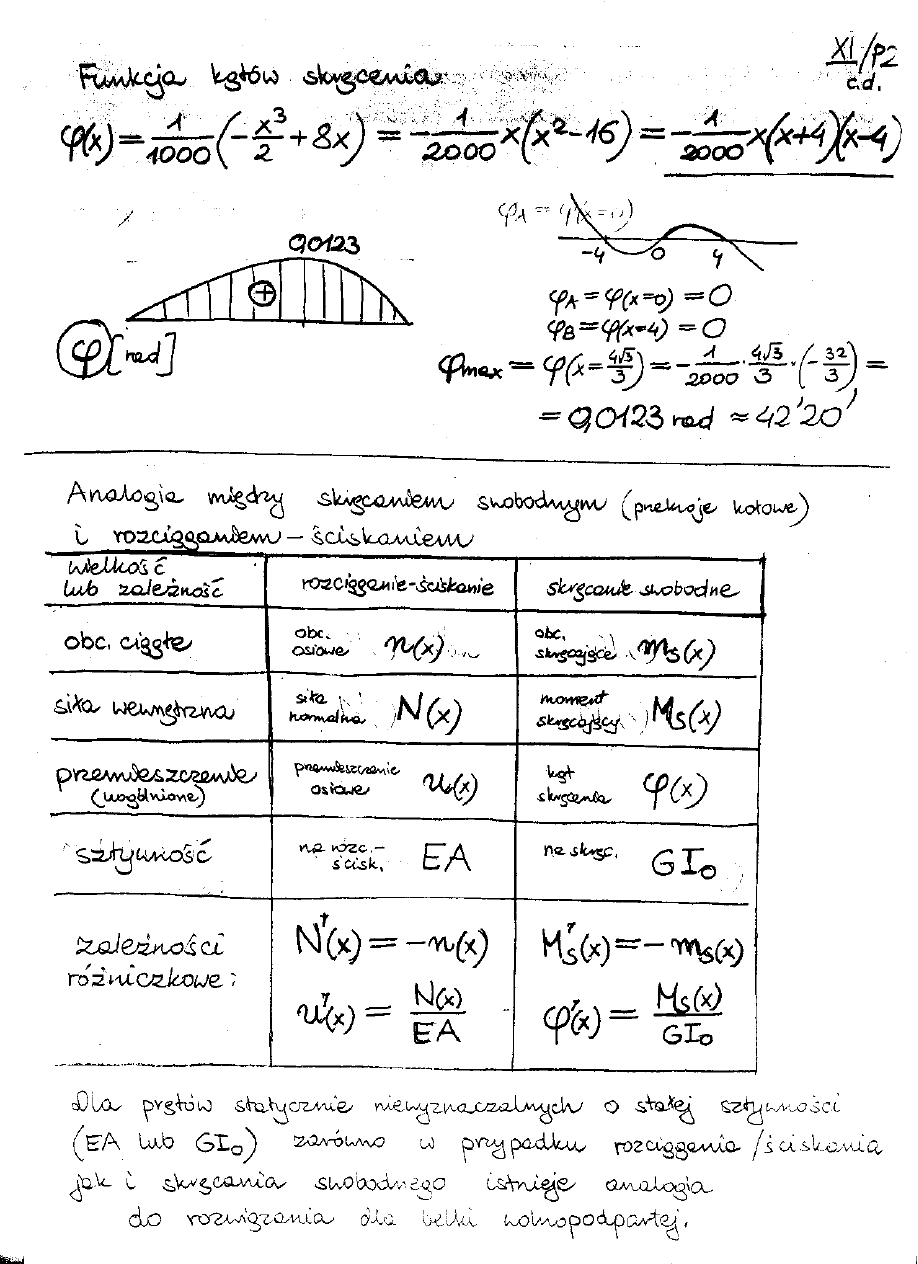 XI/P2
c.d.
Funkcja kątów skręcenia
φ(x) = 1/1000 (-x³/2 + 8x) = -1/2000 x(x²-16) = -1/2000 x(x+4)(x-4)
φA = φ(x=0)
0,0123
-4 0 4
⊕
φA = φ(x=0) = 0
φB = φ(x=4) = 0
φ [rad]
φmax = φ(x = 4√3/3) = -1/2000 · 4√3/3 · (-32/3) =
= 0,0123 rad ≈ 42'20'
Analogia między skręcaniem swobodnym (przekroje kołowe)
i rozciąganiem-ściskaniem
wielkość lub zależność | rozciąganie-ściskanie | skręcanie swobodne
obc. ciągłe | obc. osiowe n(x) | obc. skręcające ms(x)
siła wewnętrzna | siła normalna N(x) | moment skręcający Ms(x)
przemieszczenie (uogólnione) | przemieszczenie osiowe u(x) | kąt skręcenia φ(x)
sztywność | na rozc.-ścisk. EA | na skręc. GI₀
zależności różniczkowe: | N'(x) = -n(x) | Ms'(x) = -ms(x)
u'(x) = N(x)/EA | φ'(x) = Ms(x)/GI₀
Dla prętów statycznie niewyznaczalnych o stałej sztywności
(EA lub GI₀) zarówno w przypadku rozciągania/ściskania
jak i skręcania swobodnego istnieje analogia
do rozwiązania dla belki wolnopodpartej.